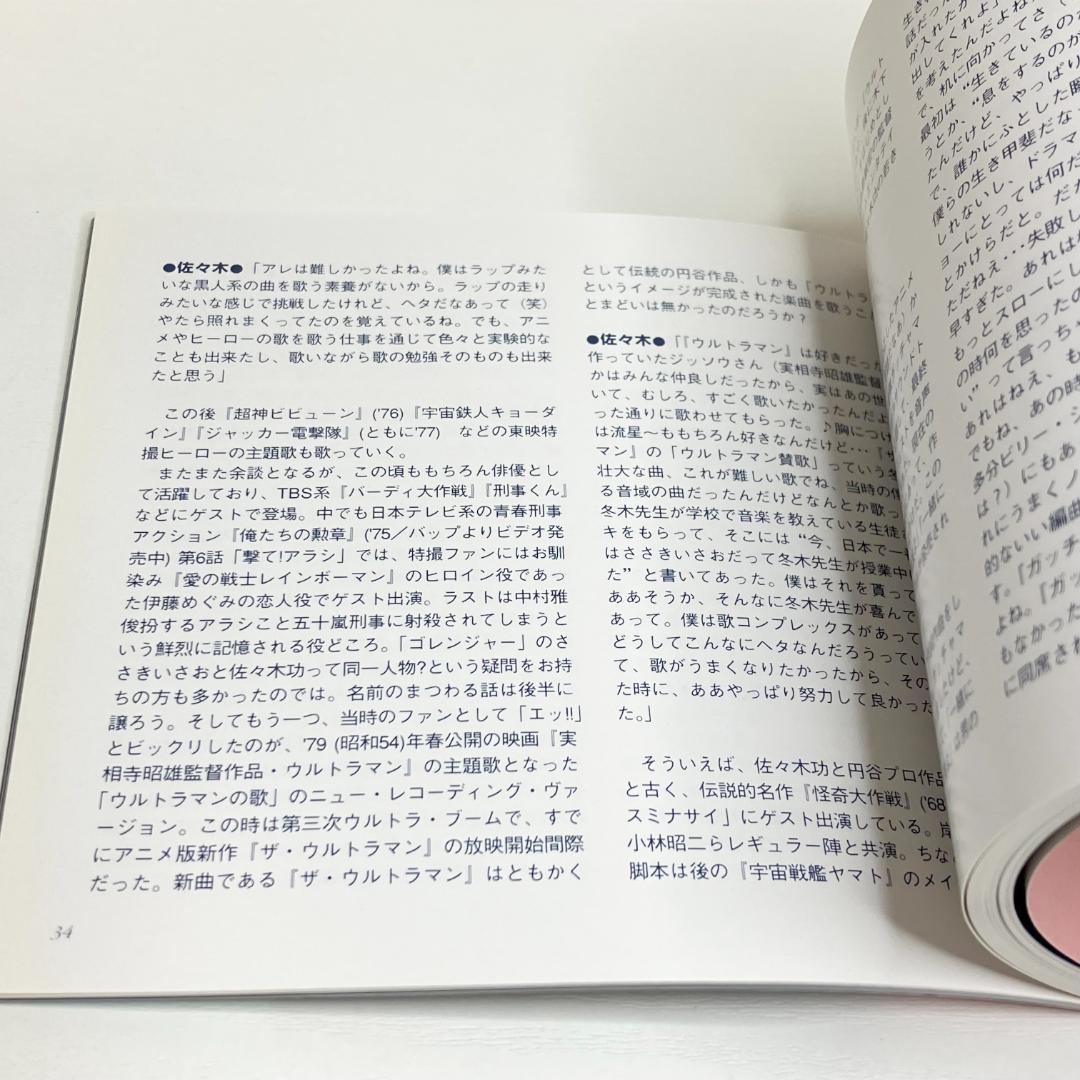 ●佐々木●「アレは難しかったよね。僕はラップみた
いな黒人系の曲を歌う素養がないから。ラップの走り
みたいな感じで挑戦したけれど、ヘタだなあって（笑）
やたら照れまくってたのを覚えているね。でも、アニ
メやヒーローの歌を歌う仕事を通じて色々と実験的な
ことも出来たし、歌いながら歌の勉強そのものも出来
たと思う」
この後『超神ビビューン』('76)『宇宙鉄人キョーダ
イン』『ジャッカー電撃隊』(ともに'77) などの東映特
撮ヒーローの主題歌も歌っていく。
またまた余談となるが、この頃ももちろん俳優とし
て活躍しており、TBS系『バーディ大作戦』『刑事くん』
などにゲストで登場。中でも日本テレビ系の青春刑事
アクション『俺たちの勲章』('75／バップよりビデオ発
売中) 第6話「撃て!アラシ」では、特撮ファンにはお馴
染み『愛の戦士レインボーマン』のヒロイン役であっ
た伊藤めぐみの恋人役でゲスト出演。ラストは中村雅
俊扮するアラシこと五十嵐刑事に射殺されてしまうと
いう鮮烈に記憶される役どころ。「ゴレンジャー」のさ
さきいさおと佐々木功って同一人物?という疑問をお持
ちの方も多かったのでは。名前のまつわる話は後半に
譲ろう。そしてもう一つ、当時のファンとして「エッ!!」
とビックリしたのが、'79 (昭和54)年春公開の映画『実
相寺昭雄監督作品・ウルトラマン』の主題歌となった
「ウルトラマンの歌」のニュー・レコーディング・ヴァ
ージョン。この時は第三次ウルトラ・ブームで、すで
にアニメ版新作『ザ・ウルトラマン』の放映開始間際
だった。新曲である『ザ・ウルトラマン』はともかく
34
として伝統の円谷作品、しかも「ウルトラ
というイメージが完成された楽曲を歌うこ
とまどいは無かったのだろうか？
●佐々木●「『ウルトラマン』は好きだった
作っていたジッソウさん（実相寺昭雄監督
かはみんな仲良しだったから、実はあの世
いて、むしろ、すごく歌いたかったんだよ
った通りに歌わせてもらった。♪胸につけ
は流星～ももちろん好きなんだけど…『ザ
マン』の「ウルトラマン賛歌」っていう冬
壮大な曲、これが難しい歌でね、当時の僕
る音域の曲だったんだけどなんとか歌っ
冬木先生が学校で音楽を教えている生徒
キをもらって、そこには“今、日本で一番
はささきいさおだって冬木先生が授業中に
た”と書いてあった。僕はそれを貰って
ああそうか、そんなに冬木先生が喜んで
あって。僕は歌コンプレックスがあって
どうしてこんなにヘタなんだろうってい
て、歌がうまくなりたかったから、その
た時に、ああやっぱり努力して良かった
た。」
そういえば、佐々木功と円谷プロ作品
と古く、伝説的名作『怪奇大作戦』('68
スミナサイ」にゲスト出演している。岸
小林昭二らレギュラー陣と共演。ちな
脚本は後の『宇宙戦艦ヤマト』のメイ
出してくれよ」
を考えたんだよね
で、机に向かってさ
最初は“生きているのが
うとか、“息をするのが
たんだけど、やっぱり
で、誰かにふとした瞬
僕らの生き甲斐だな
しれないし、ドラマ
ョーにとっては何だ
とかけらだと。だか
ただねえ…失敗し
早すぎた。あれは
もっとスローにし
の時何を思ったの
い”って言っちゃ
あれはねえ、も
でもね、あの時
多分ビリー・ジ
は？）にもあ
れにうまくノ
的ないい編曲
す。「ガッチ
よね。「ガッ
もなかった
に同席され